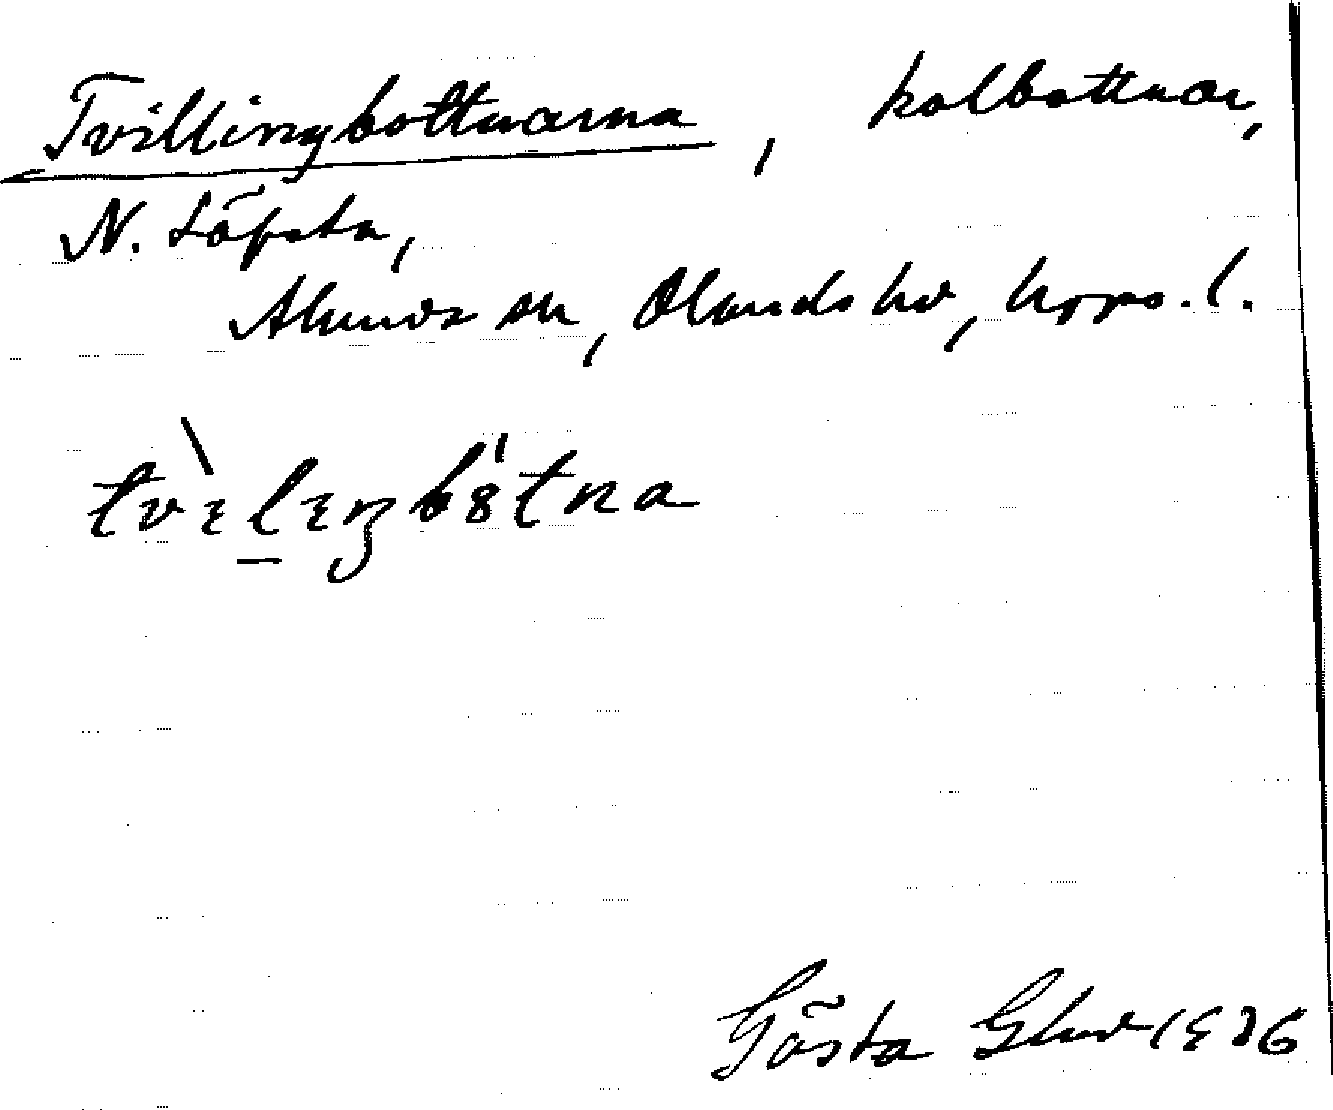 Tvillingbottnarna, kolbottnar,
N. Löfsta,
Alunda sn, Olands hd, Upps. l.
Gösta 1936